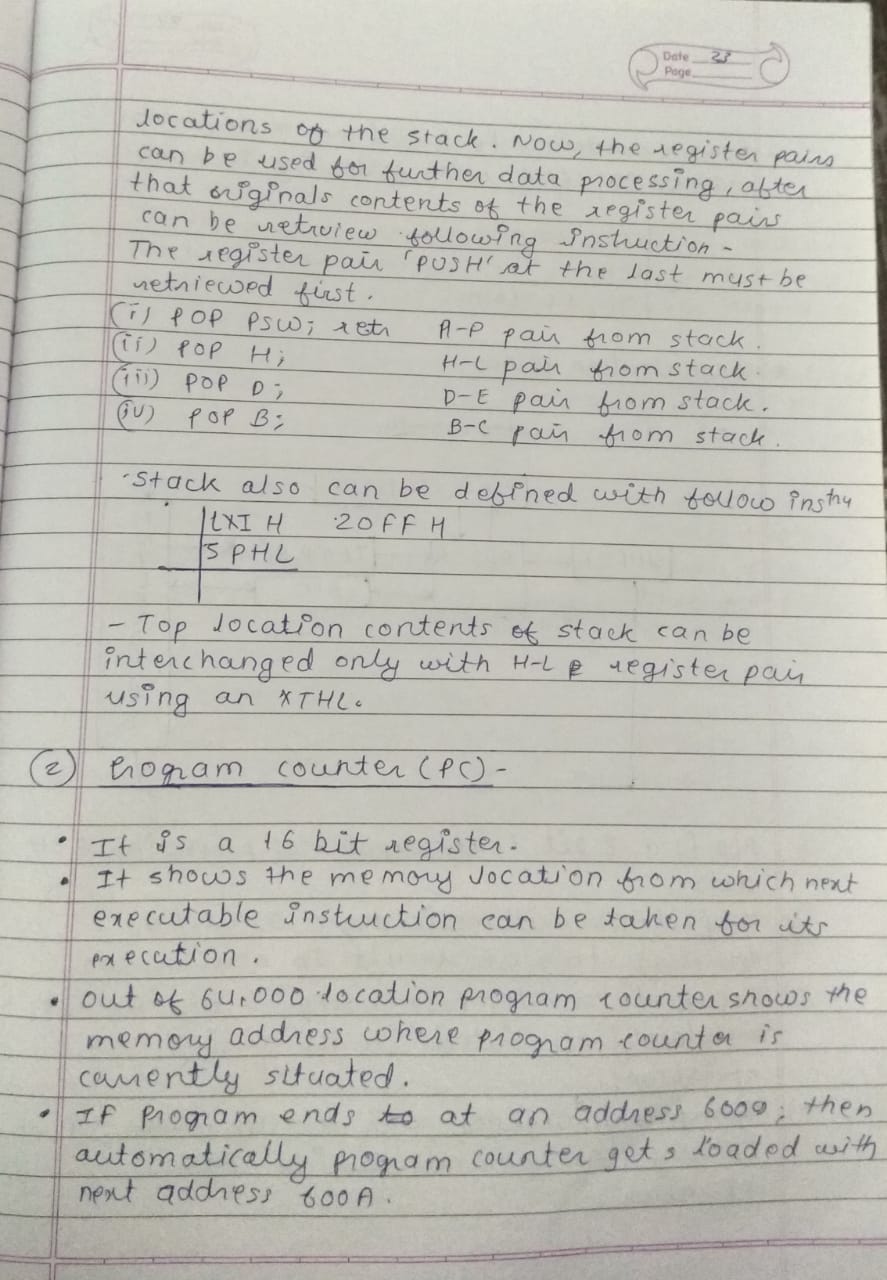 Date 23
Page
locations of the stack. Now, the register pairs
can be used for further data processing, after
that originals contents of the register pairs
can be retrview following instruction -
The register pair 'PUSH' at the last must be
retriewed first.
(i) POP PSW; retr A-P pair from stack.
(ii) POP H; H-L pair from stack.
(iii) POP D; D-E pair from stack.
(iv) POP B; B-C pair from stack.
·Stack also can be defined with follow instru
LXI H 20FF H
SPHL
- Top location contents of stack can be
interchanged only with H-L register pair
using an XTHL.
(2) Program counter (PC) -
• It is a 16 bit register.
• It shows the memory location from which next
executable instruction can be taken for its
execution.
• out of 64,000 location program counter shows the
memory address where program counter is
currently situated.
• If program ends at an address 6009; then
automatically program counter gets loaded with
next address 600A.